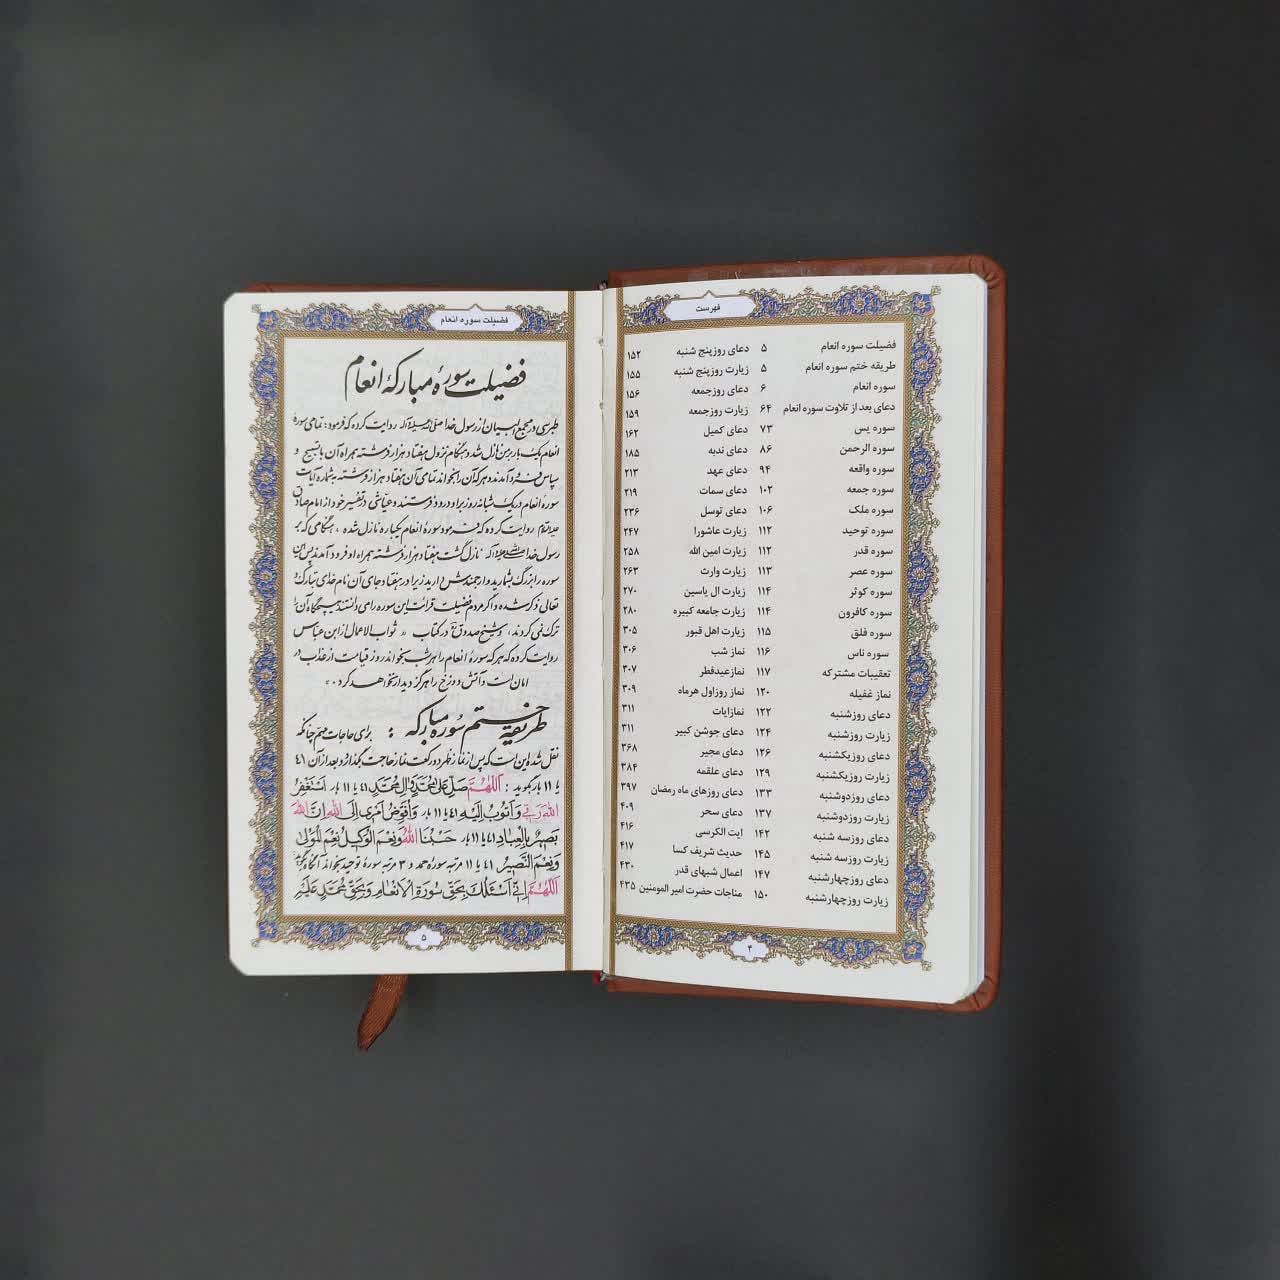 فهرست
فضیلت سوره انعام ۵ دعای روز پنج شنبه ۱۵۲
طریقه ختم سوره انعام ۵ زیارت روز پنج شنبه ۱۵۵
سوره انعام ۶ دعای روزجمعه ۱۵۶
دعای بعد از تلاوت سوره انعام ۶۴ زیارت روزجمعه ۱۵۹
سوره یس ۷۳ دعای کمیل ۱۶۲
سوره الرحمن ۸۶ دعای ندبه ۱۸۵
سوره واقعه ۹۴ دعای عهد ۲۱۳
سوره جمعه ۱۰۲ دعای سمات ۲۱۹
سوره ملک ۱۰۶ دعای توسل ۲۳۶
سوره توحید ۱۱۲ زیارت عاشورا ۲۴۷
سوره قدر ۱۱۲ زیارت امین الله ۲۵۸
سوره عصر ۱۱۳ زیارت وارث ۲۶۳
سوره کوثر ۱۱۴ زیارت ال یاسین ۲۷۰
سوره کافرون ۱۱۴ زیارت جامعه کبیره ۲۸۰
سوره فلق ۱۱۵ زیارت اهل قبور ۳۰۵
سوره ناس ۱۱۶ نماز شب ۳۰۶
تعقیبات مشترکه ۱۱۷ نماز عیدفطر ۳۰۷
نماز غفیله ۱۲۰ نماز روزاول هرماه ۳۰۹
دعای روزشنبه ۱۲۲ نمازایات ۳۱۱
زیارت روزشنبه ۱۲۴ دعای جوشن کبیر ۳۱۱
دعای روزیکشنبه ۱۲۶ دعای مجیر ۳۶۸
زیارت روزیکشنبه ۱۲۹ دعای علقمه ۳۸۴
دعای روزدوشنبه ۱۳۳ دعای روزهای ماه رمضان ۳۹۷
زیارت روزدوشنبه ۱۳۷ دعای سحر ۴۰۹
دعای روزسه شنبه ۱۴۲ ایت الکرسی ۴۱۶
زیارت روزسه شنبه ۱۴۵ حدیث شریف کسا ۴۱۷
دعای روزچهارشنبه ۱۴۷ اعمال شبهای قدر ۴۳۰
زیارت روزچهارشنبه ۱۵۰ مناجات حضرت امیر المومنین ۴۳۵
۴
فضیلت سوره انعام
فضیلت سورهٔ مبارکهٔ انعام
طبرسی در مجمع البیان از رسول خدا صلی الله علیه و آله روایت کرده که فرمود: تمامی سوره
انعام یک بار بر من نازل شد و هنگام نزول هفتاد هزار فرشته همراه آن با تسبیح و
سپاس فرود آمدند و هر که آن را بخواند تمامی آن هفتاد هزار فرشته به شماره آیات
سورهٔ انعام در یک شبانه روز بر او درود فرستند و عیّاشی در تفسیر خود از امام صادق
علیه السلام روایت کرده که فرمود سورهٔ انعام یکباره نازل شده ، هنگامی که بر
رسول خدا صلی الله علیه و آله نازل گشت هفتاد هزار فرشته همراه او فرود آمدند پس این
سوره را بزرگ بشمارید و ارجمندش دارید زیرا در هفتاد جای آن نام خدای تبارک و
تعالی ذکر شده و اگر مردم فضیلت قرائت این سوره را می دانستند هیچگاه آن را
ترک نمی کردند ، و شیخ صدوق در کتاب « ثواب الاعمال از ابن عباس
روایت کرده که هر که سورهٔ انعام را هر شب بخواند روز قیامت از عذاب در
امان است و آتش دوزخ را هرگز دیدار نخواهد کرد . »
طریقهٔ ختم سورهٔ مبارکه : برای حاجات مهم چنانکه
نقل شده این است که پس از نماز ظهر دو رکعت نماز حاجت بگذارد و بعد از آن ۴۱
یا ۱۱ بار بگوید : اَللّٰهُمَّ صَلِّ عَلیٰ مُحَمَّدٍ وَ آلِ مُحَمَّدٍ ۴۱ یا ۱۱ بار اَسْتَغْفِرُ
اللهَ رَبّی وَ اَتُوبُ اِلَیْهِ ۴۱ یا ۱۱ بار وَ اُفَوِّضُ اَمْری اِلَی اللهِ اِنَّ اللهَ
بَصیرٌ بِالْعِبادِ ۴۱ یا ۱۱ بار حَسْبُنَا اللهُ وَ نِعْمَ الْوَکیلُ نِعْمَ الْمَوْلیٰ
وَ نِعْمَ النَّصیرُ ۴۱ یا ۱۱ مرتبه سورهٔ حمد و ۳ مرتبه سورهٔ توحید بخواند آنگاه بگوید
اَللّٰهُمَّ اِنّی اَسْئَلُکَ بِحَقِّ سُورَةِ الْاَنْعامِ وَ بِحَقِّ مُحَمَّدٍ عَلَیْهِ
۵